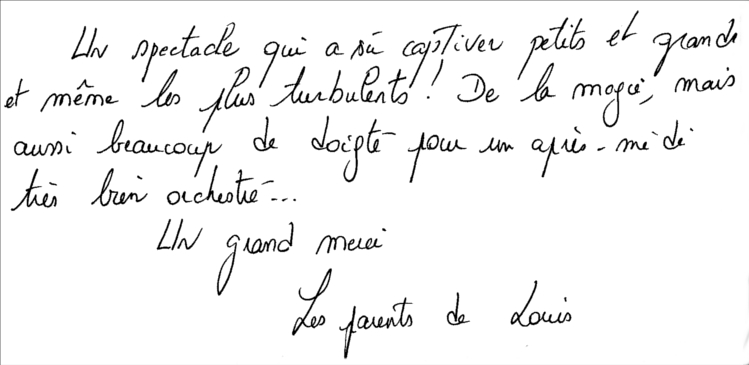 Un spectacle qui a sû captiver petits et grands
et même les plus turbulents ! De la magie, mais
aussi beaucoup de doigté pour un après-midi
très bien orchestré...
Un grand merci
Les parents de Louis